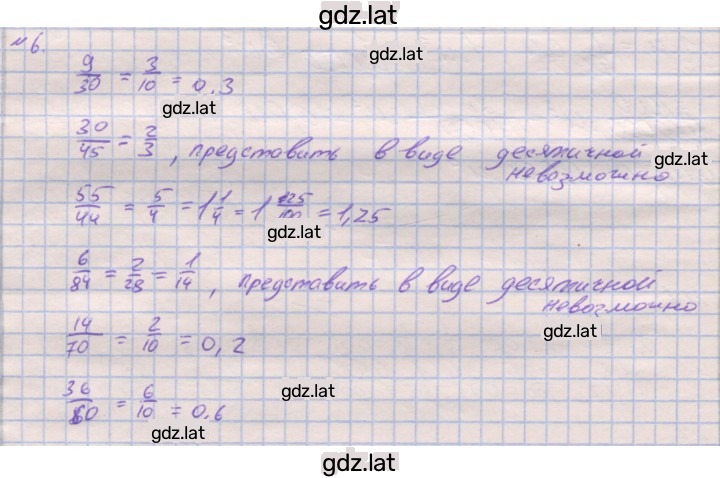 gdz.lat
gdz.lat
№6.
9/30 = 3/10 = 0,3
gdz.lat
30/45 = 2/3, представить в виде десятичной
gdz.lat
невозможно
55/44 = 5/4 = 1 1/4 = 1 25/100 = 1,25
gdz.lat
6/84 = 2/28 = 1/14, представить в виде десятичной
невозможно
gdz.lat
14/70 = 2/10 = 0,2
gdz.lat
36/60 = 6/10 = 0,6
gdz.lat
gdz.lat